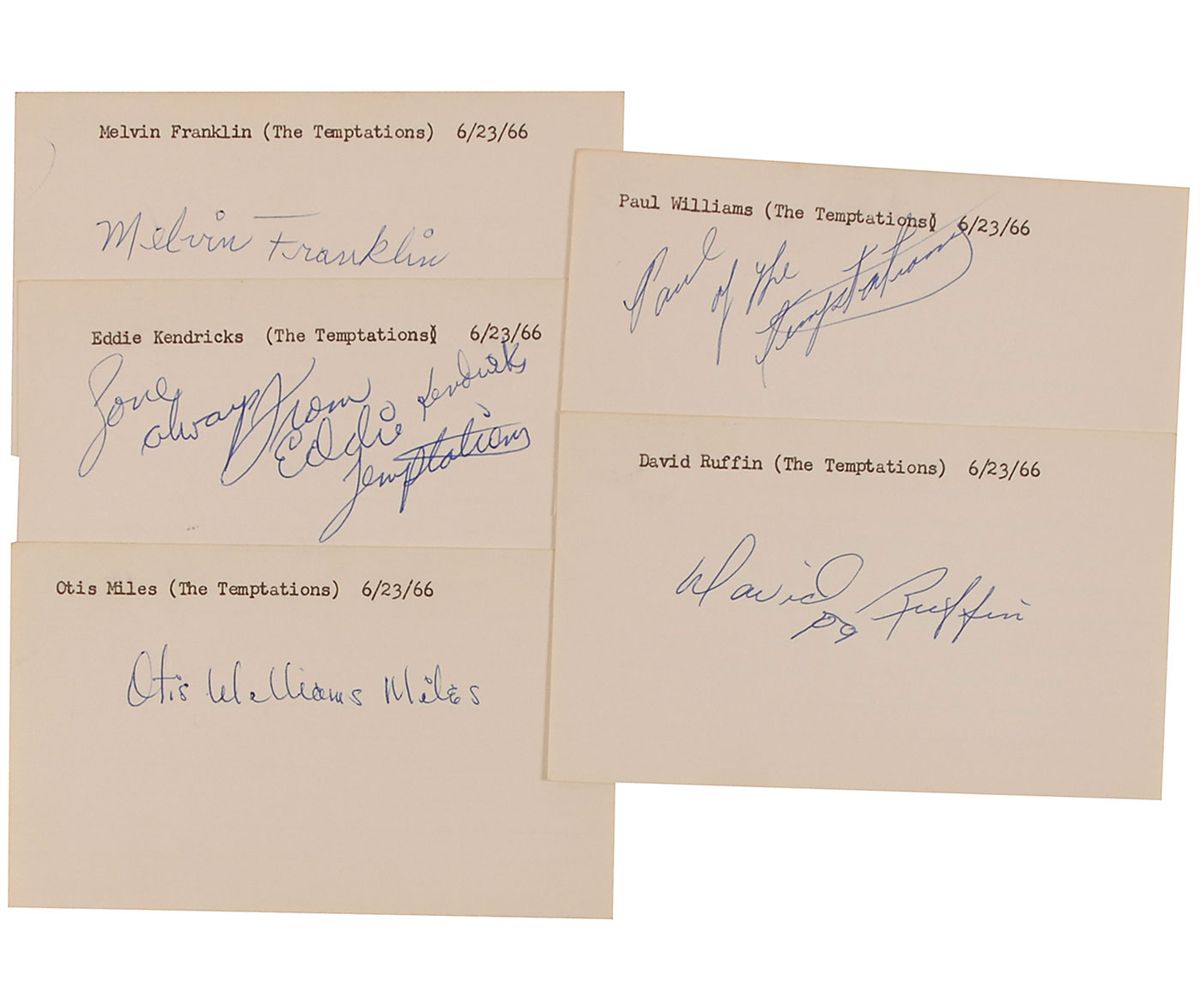 Melvin Franklin (The Temptations) 6/23/66
Melvin Franklin
Eddie Kendricks (The Temptations) 6/23/66
Love
always From
Eddie Kendricks
Temptations
Otis Miles (The Temptations) 6/23/66
Otis Williams Miles
Paul Williams (The Temptations) 6/23/66
Paul of the
Temptations
David Ruffin (The Temptations) 6/23/66
David Ruffin